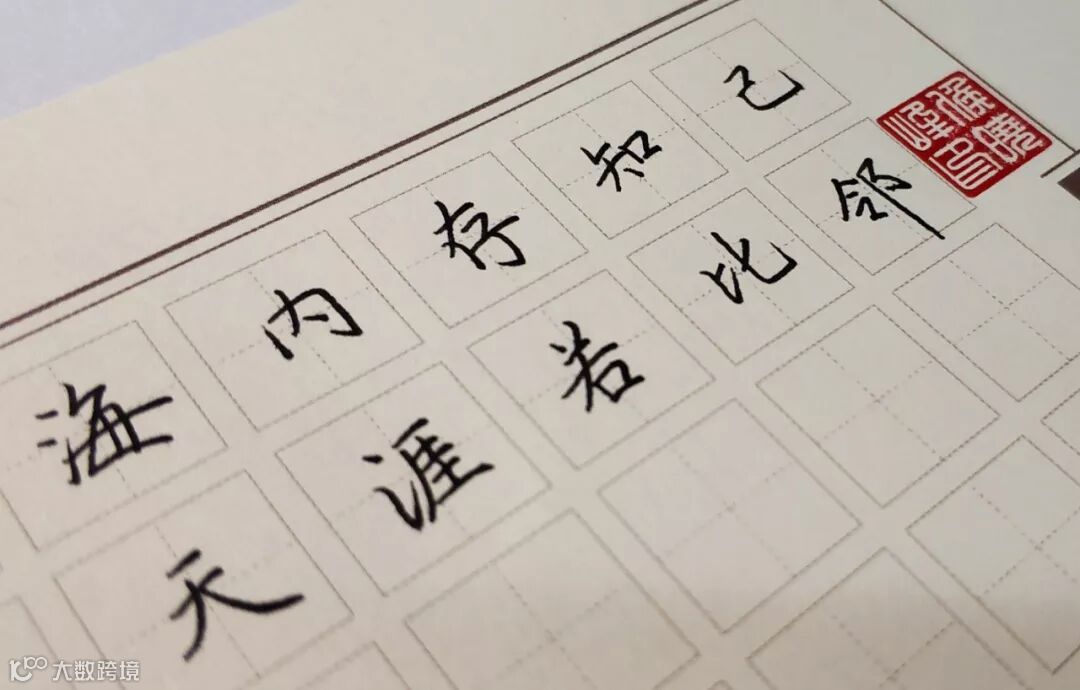 海内存知己
天涯若比邻
大数跨境